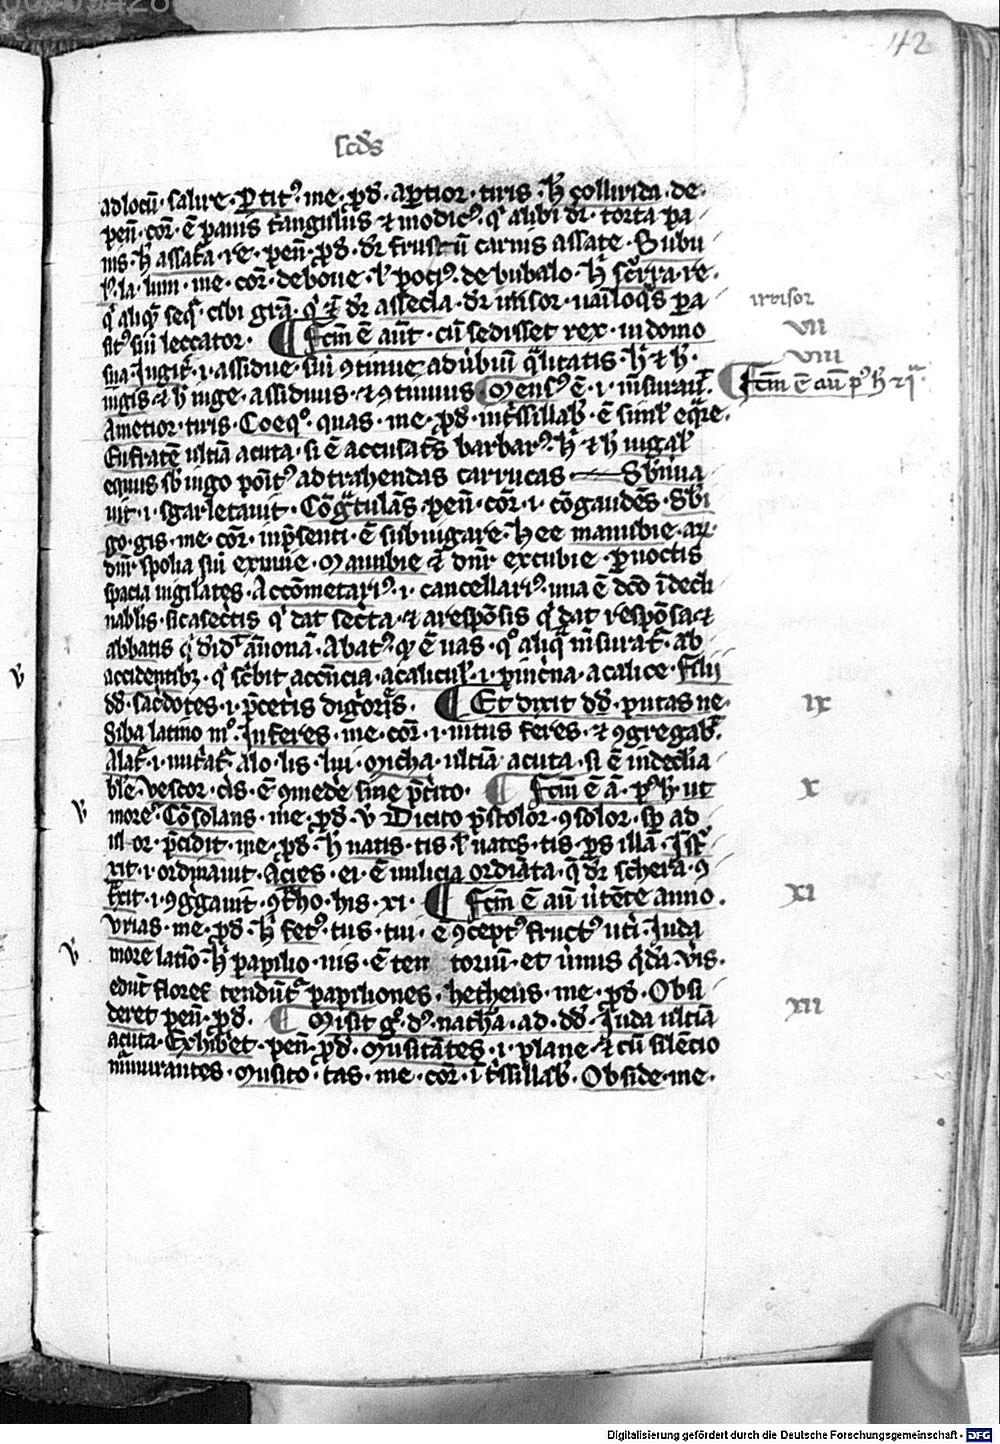 42
scd̄s
ad locū · salire · ꝑtit᷒ · me · ꝓd · aꝑtior · tiris · h̄ collirida · de
pen̄ · cor̄ · ē panis t̄angul᷒is ⁊ modic᷒ · qͥ alibi dr̄ · torta pa
nis · h̄ assat̄a · re · pen̄ · ꝓd · dr̄ frustū carnis assate · Subu
l᷒ · la · lum · me · cor̄ · de boue · ł poci᷒ · de bubalo · h̄ · re ·
qͥ aliqͥ seqͥ cibi gr̄a · dr̄ assecla · dr̄ irrisor · uaniloqͥs pa
sit᷒ siū leccator · ¶ Fc̄m ē aut̄ · cū sedisset rex · in domo
irrisor
VII
sua Iugit̄ · i · assidue · siū ꝯtinue aduerbiū q̄litatis · h̄ ⁊ h̄ ·
VIII
iugis ⁊ h̄ iuge · assiduus · ⁊ ꝯtinuus Mens᷒ ē · i · m̄suraū
¶ Fc̄m ē aū p᷒ h̄
Ametior · tiris · Coeqͦ · quas · me · ꝓd · int̄sillab̄ · ē simł eq̄re ·
Eufratē ultiā acuta · si ē accusat̄s barbar᷒ · h̄ ⁊ h̄ iugał
equus sb̄ iugo poīt᷒ ad trahendas carrucas — Sb̄nua
uit · i · sgarletauit · Cōgͣtulās · pen̄ · cor̄ · i · cōgaudēs · Sb̄i
go · gis · me · cor̄ · inp̄senti · ē subiugare · hee manubie · ar
dn̄r spolia siū exuuie · Manubie dn̄r excubie · ꝑ noctis
spacia uigilates · Accōmetari᷒ · i · cancellari᷒ · una ē dc̄o īdecli
nabłis · sic asecͥtis qͥ dat secͥta · ⁊ arespōsis qͥ dat respōsa ⁊
abbatis qͥ añonā · Abat᷒ · ē uas · qͦ aliqͥ m̄surat̄ · ab
accidentibꝫ · qͥ scͥbit accn̄cia · acalicuł · i · pincͥna · acalice · filij
v
dd̄ · sac̄dotes · i · p̄cet̄is digͥores · ¶ Et dixit dd̄ · putas ne ·
IX
Siba latino mͦ · Inferes · me · cor̄ · i · intus feres · ⁊ ꝯgregab̄ ·
Alat̄ · i · nut̄at̄ · Alo · lis · lui · Micha · ultiā acuta · si ē indeclia
błe Vescor · cͥis · ē ꝯmedē sine p̄tito · ¶ Fc̄m ē ā · p᷒ h̄ · ut
X
more᷒ · Cōsolans · me · ꝓd · v̄ Dicito p̄stolor · ꝯsolor · sp̄ ad
v
isl · or · p̄cidit · me · ꝓd · h̄ natis · tis ł nates · tis · ꝑs illā · Istͬ
xit · i · ordinauit · Acies · ei · ē milicia ordiāta · q̄ dr̄ schera · ꝯ
tͣxit · i · ꝯgͣgauit · ꝯtͣho · his · xi · ¶ Fc̄m ē aū ūtēte anno ·
XI
Vrias · me · ꝓd · h̄ fet᷒ · tus · tui · ē ꝯcept᷒ fruct᷒ utͥi · Iuda
more latīo · h̄ papilio · nis · ē ten toriū · et ūmus q̄dā · vͥis ·
v
edūt flores tendūt̄ papiliones · hetheus · me · ꝓd · Obsi
deret pen̄ · ꝓd · ¶ Misit gͦ · d᷒ · nathā · ad · dd̄ · Iuda ultiā
XII
acuta · Exhib̄et · pen̄ · ꝓd · Musitātes · i · plane · ⁊ cū silecio
murmurantes · Musito · tas · me · cor̄ · i t̄sillab̄ · Obside · me ·
Digitalisierung gefördert durch die Deutsche Forschungsgemeinschaft - DFG